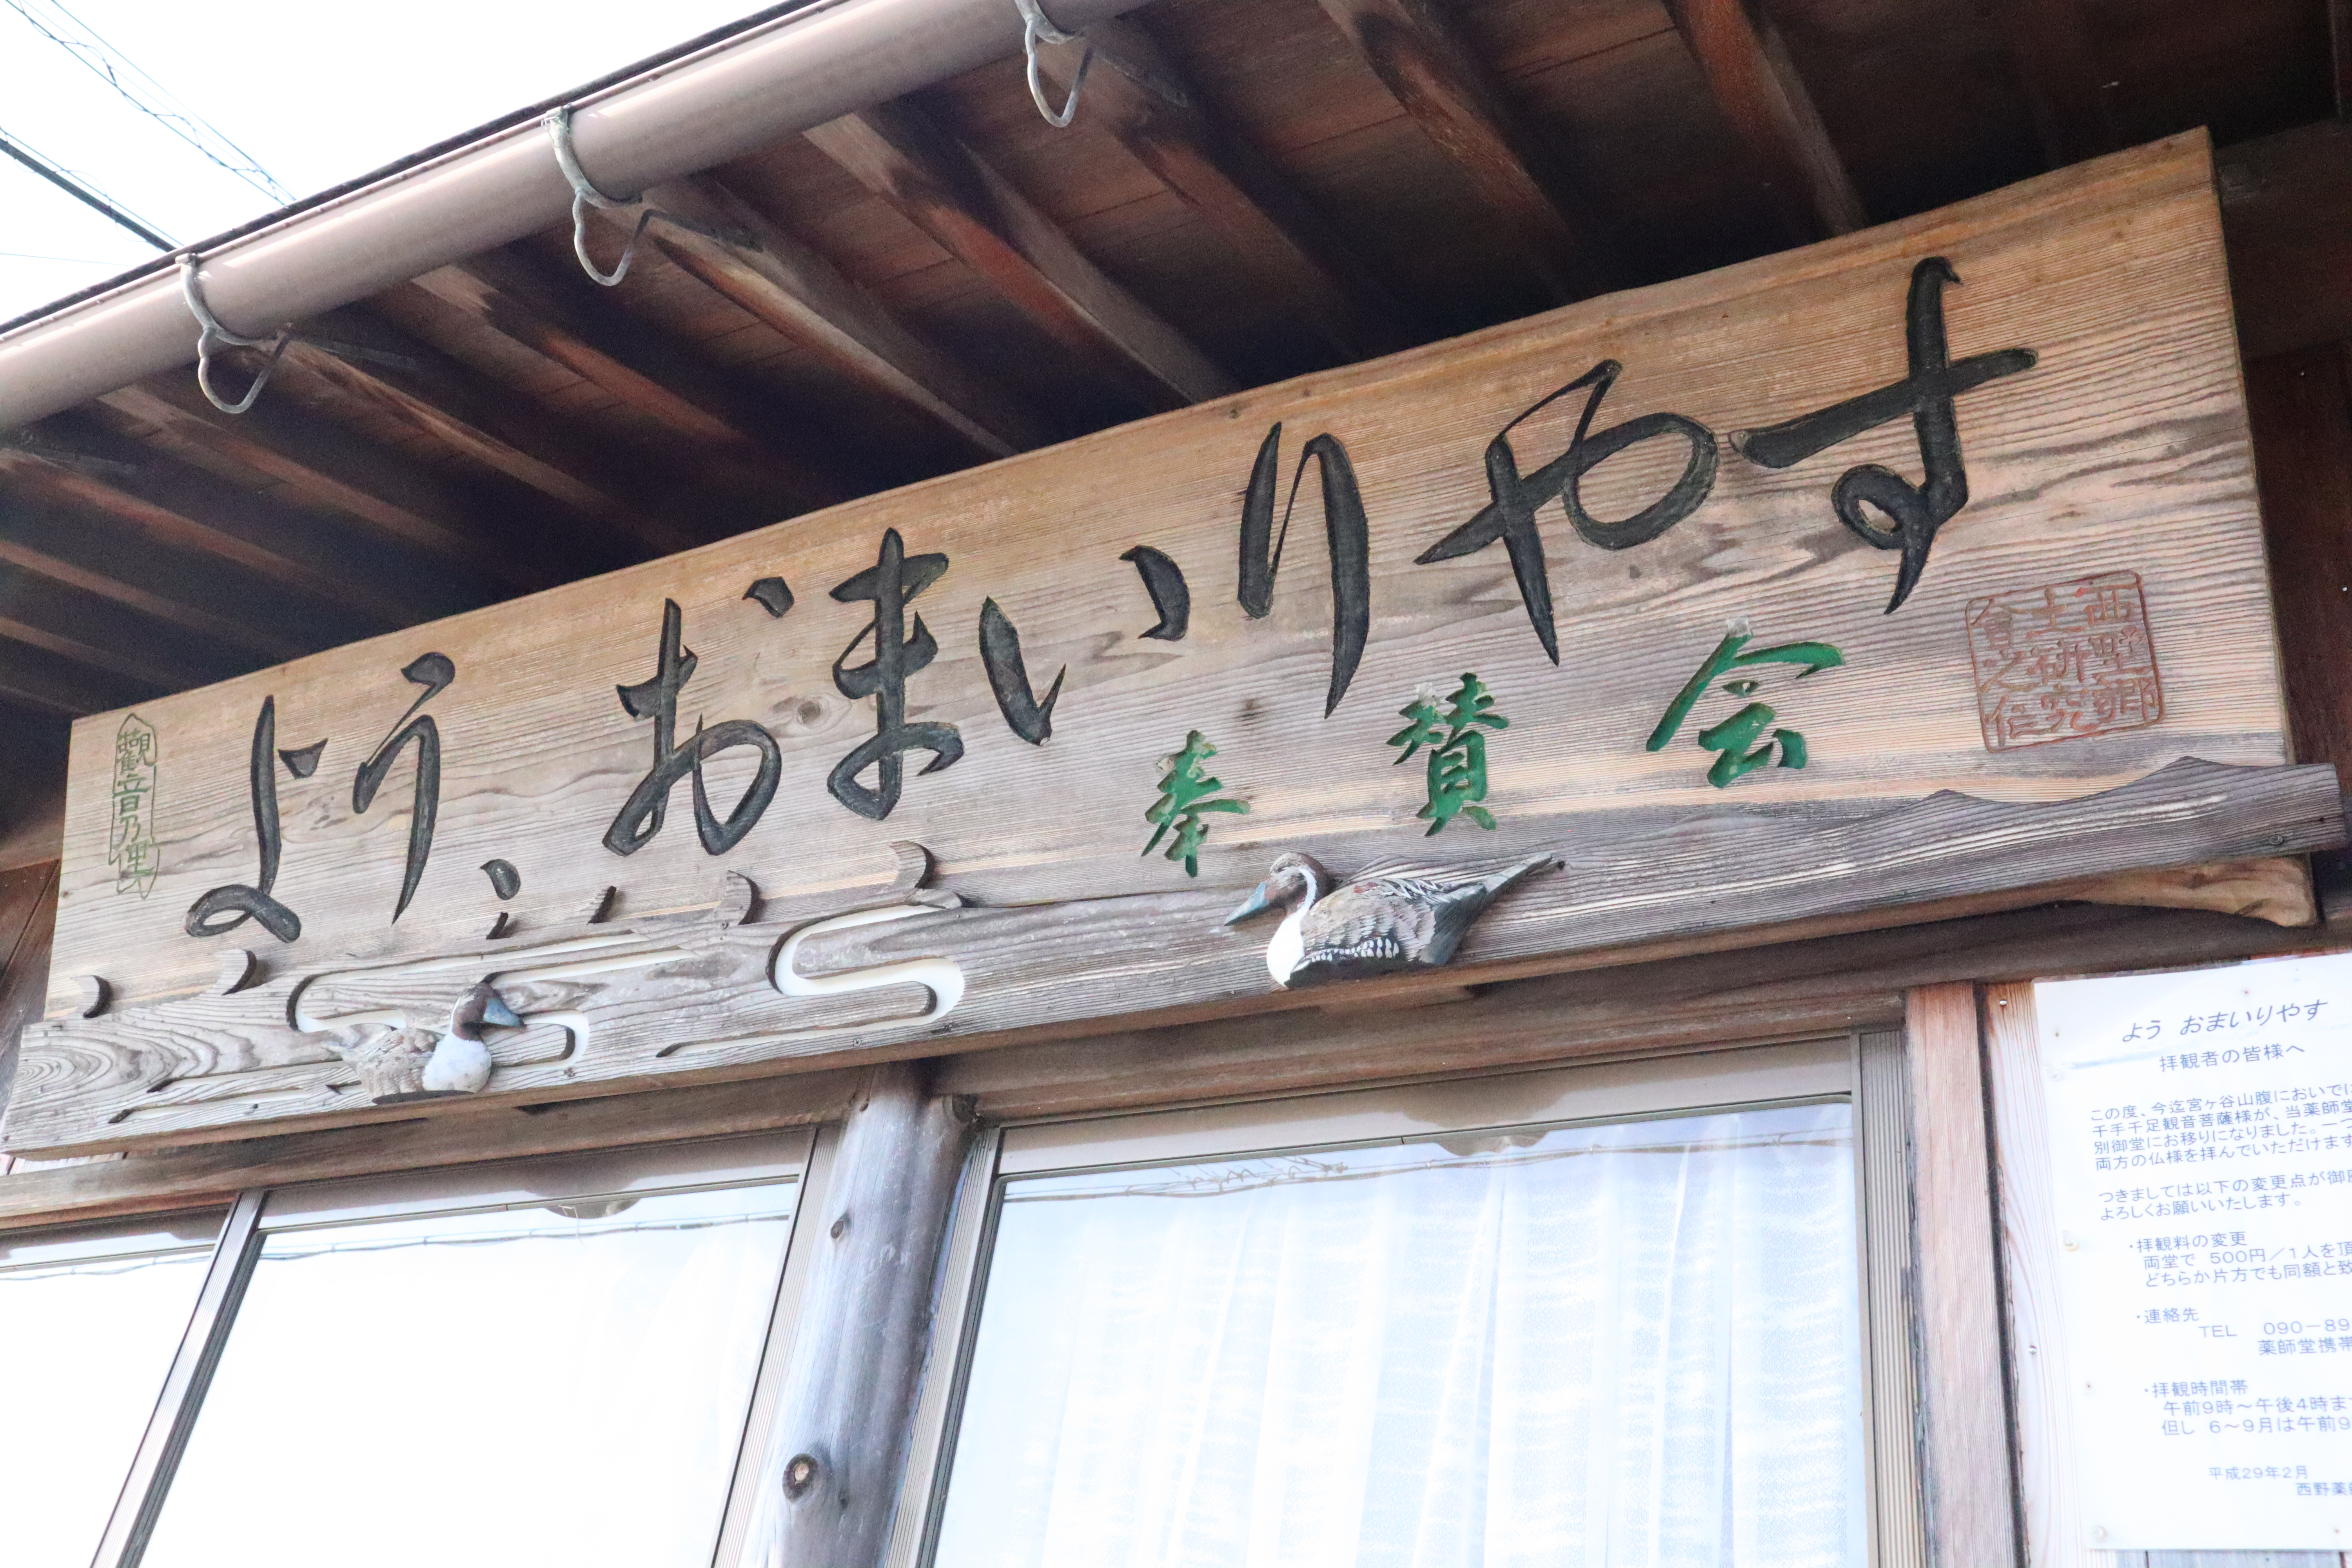 觀音乃里
よう、おまいりやす
奉賛会
西野郷
土研究
会之印
よう おまいりやす
拝観者の皆様へ
この度、今迄宮ヶ谷山腹においで
千手千足観音菩薩様が、当薬師堂
別御堂にお移りになりました。一つ
両方の仏様を拝んでいただけます
つきましては以下の変更点が御
よろしくお願いいたします。
・拝観料の変更
両堂で 500円／1人を頂
どちらか片方でも同額と致
・連絡先
TEL 090-89
薬師堂携帯
・拝観時間帯
午前9時～午後4時ま
但し 6～9月は午前9
平成29年2月
西野薬